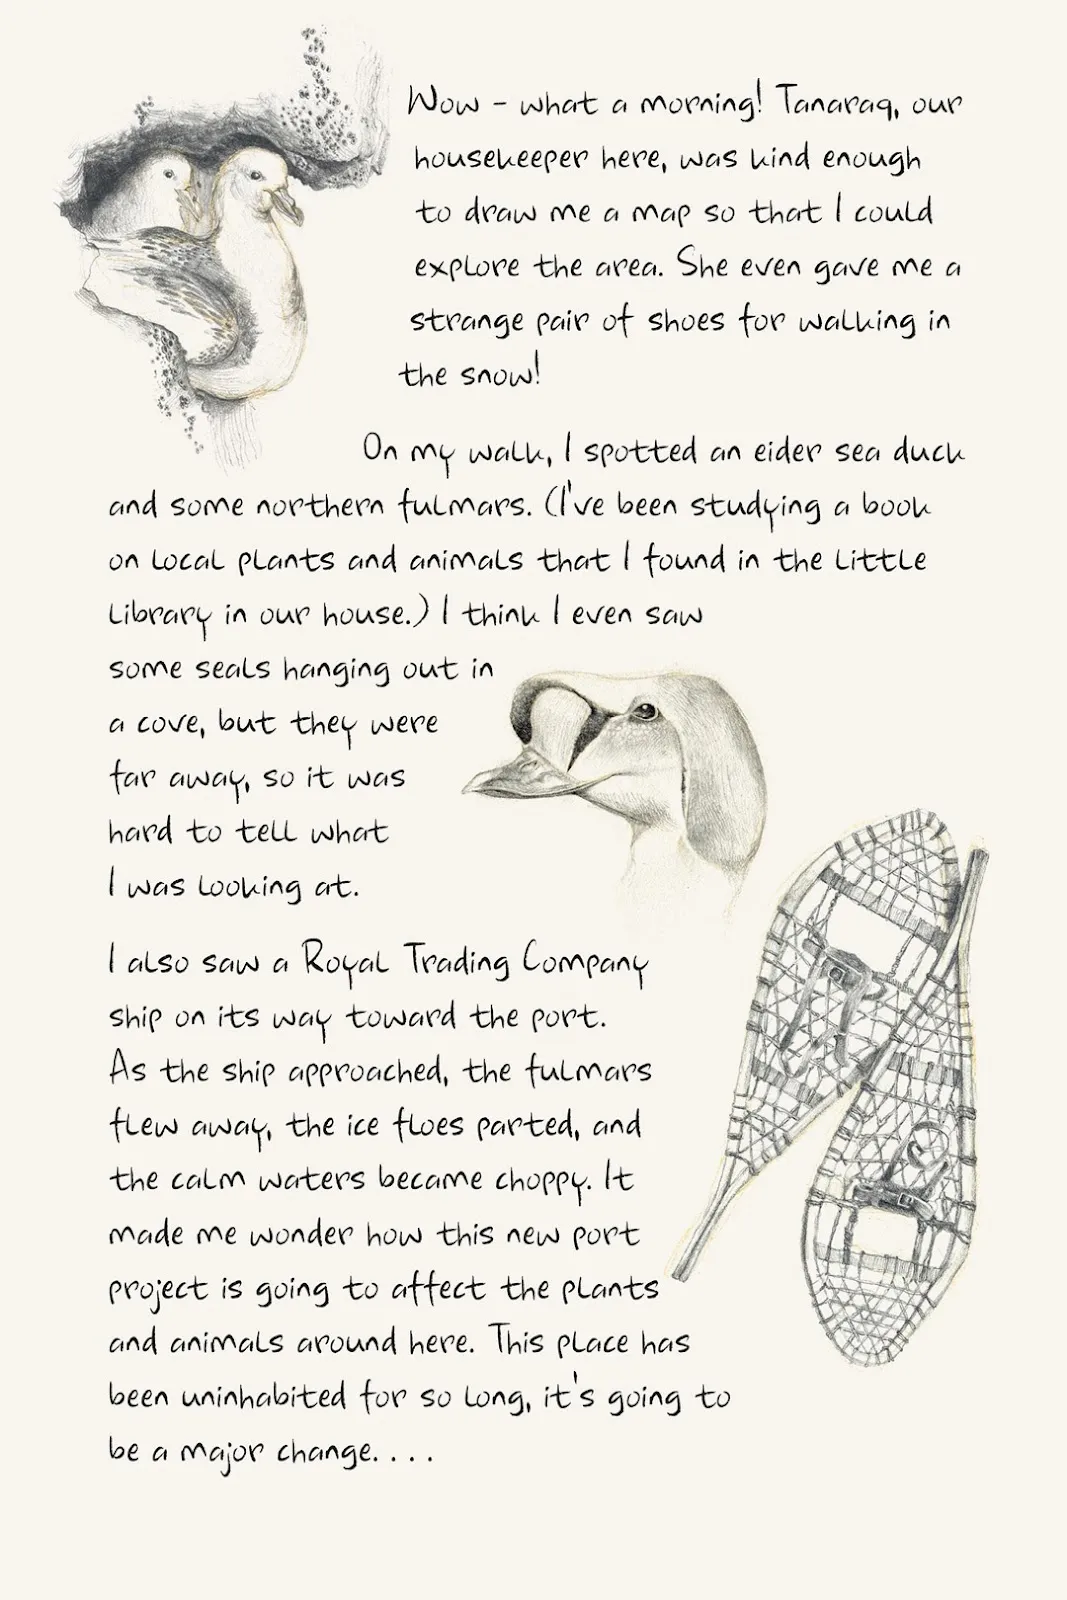 Wow - what a morning! Tanaraq, our
housekeeper here, was kind enough
to draw me a map so that I could
explore the area. She even gave me a
strange pair of shoes for walking in
the snow!
On my walk, I spotted an eider sea duck
and some northern fulmars. (I've been studying a book
on local plants and animals that I found in the little
library in our house.) I think I even saw
some seals hanging out in
a cove, but they were
far away, so it was
hard to tell what
I was looking at.
I also saw a Royal Trading Company
ship on its way toward the port.
As the ship approached, the fulmars
flew away, the ice floes parted, and
the calm waters became choppy. It
made me wonder how this new port
project is going to affect the plants
and animals around here. This place has
been uninhabited for so long, it's going to
be a major change. . . .